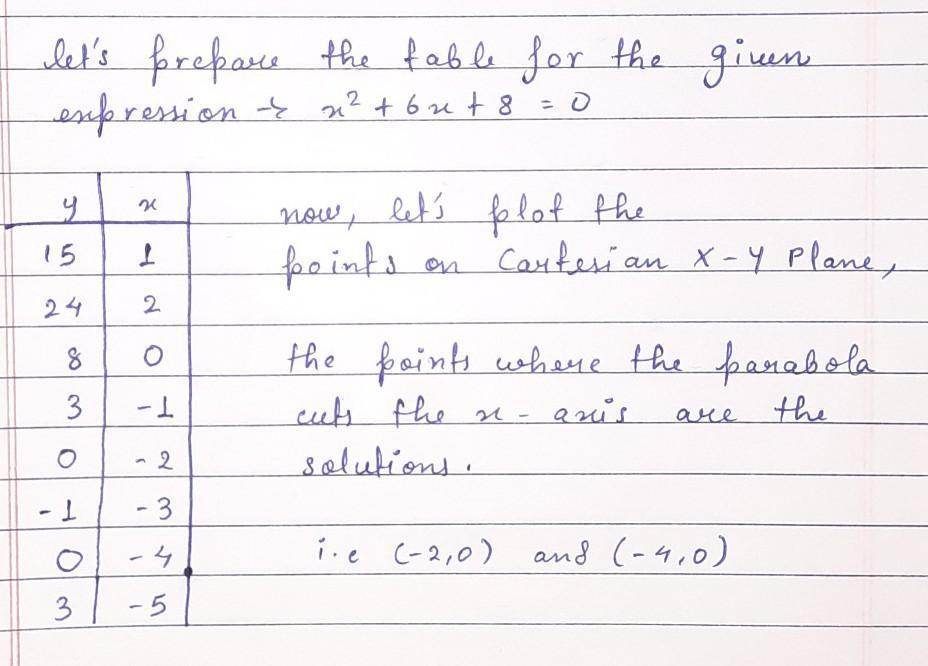 let's prepare the table for the given
expression → x² + 6x + 8 = 0
y x
15 1
24 2
8 0
3 -1
0 -2
-1 -3
0 -4
3 -5
now, let's plot the
points on Cartesian X-Y Plane,
the points where the parabola
cuts the x-axis are the
solutions.
i.e (-2,0) and (-4,0)